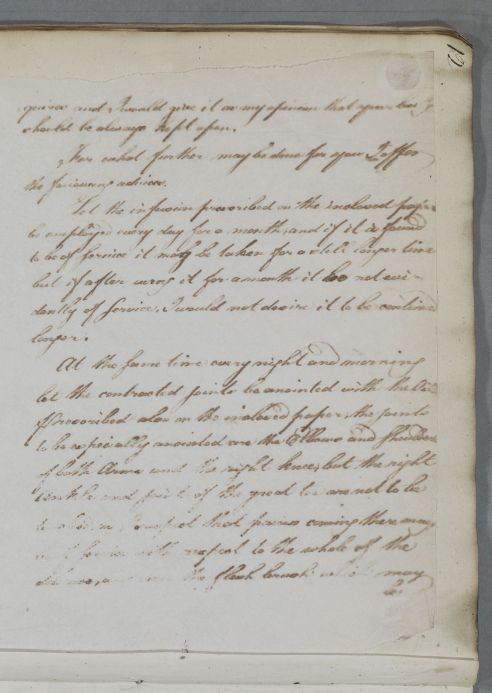 quires and I would give it as my opinion that your
should be always kept open.
For what further may be done for you I offer
the following advices.
Let the infusion prescribed on the inclosed paper
be employed every day for a month, and if it is found
to be of service it may be taken for a still longer time
but if after using it for a month it be not evi-
dently of Service, I would not desire it to be continued
longer.
At the same time every night and morning
let the contracted joints be anointed with the Oil
prescribed also on the inclosed paper, the joints
to be especially anointed are the Elbows and Shoulders
of both Arms and the right knee, but the right
and joints of the great toe are not to be
that pains coming there may
with respect to the whole of the
the flesh brush which may
be